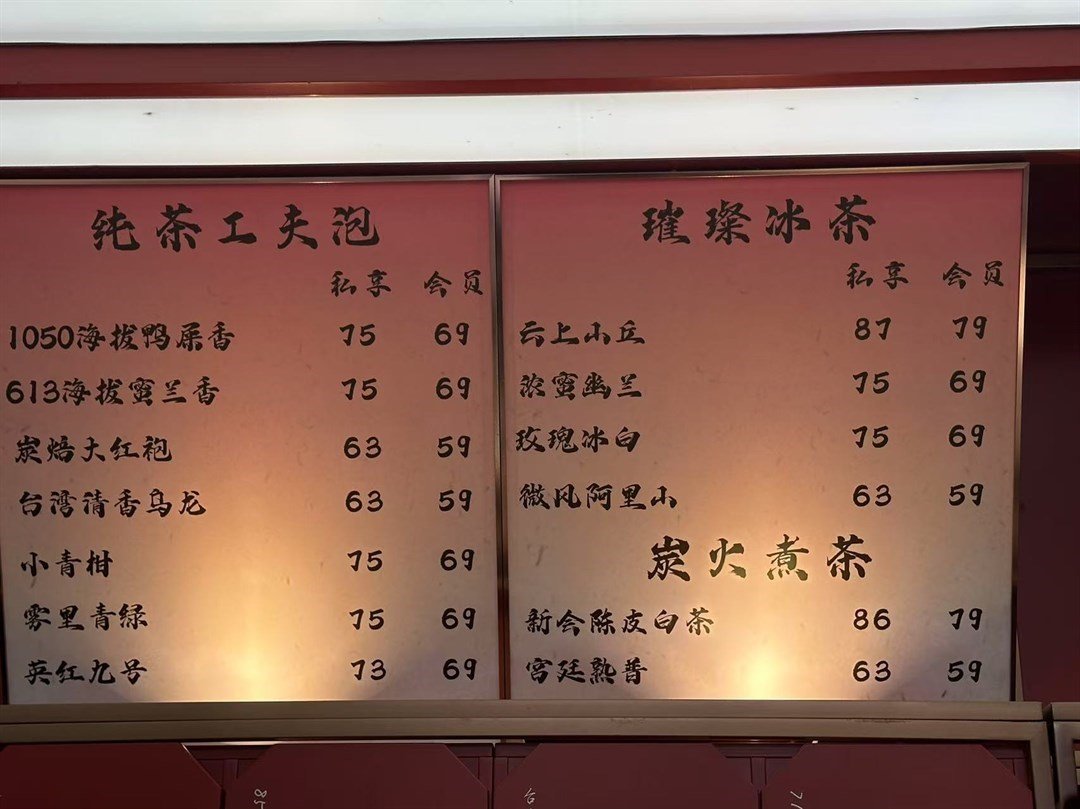 纯茶工夫泡
私享 会员
1050海拔鸭屎香 75 69
613海拔蜜兰香 75 69
炭焙大红袍 63 59
台湾清香乌龙 63 59
小青柑 75 69
雾里青绿 75 69
英红九号 73 69
璀璨冰茶
私享 会员
云上小乒 87 79
浓蜜幽兰 75 69
玫瑰冰白 75 69
微风阿里小 63 59
炭火煮茶
新会陈皮白茶 86 79
宫廷熟普 63 59